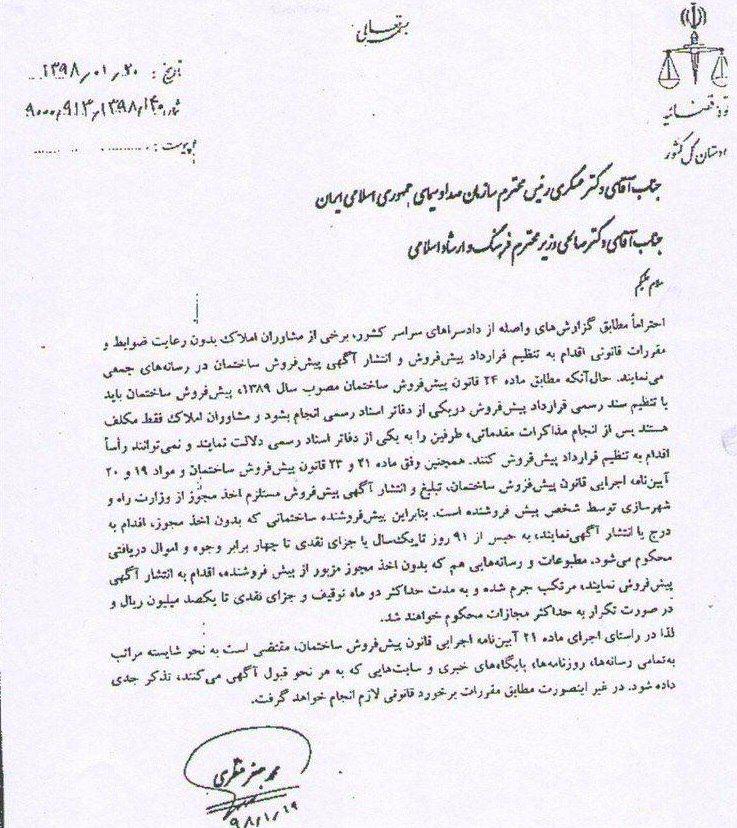 بسمه تعالی
قوه قضائیه
دادستان کل کشور
تاریخ : ۱۳۹۸/۰۱/۲۰
شماره: ۹۰۰۰/۹۱۳/۱۳۹۸/۱۴۰
پیوست :
جناب آقای دکتر عسکری رئیس محترم سازمان صدا و سیمای جمهوری اسلامی ایران
جناب آقای دکتر صالحی وزیر محترم فرهنگ و ارشاد اسلامی
سلام علیکم
احتراماً مطابق گزارش‌های واصله از دادسراهای سراسر کشور، برخی از مشاوران املاک بدون رعایت ضوابط و
مقررات قانونی اقدام به تنظیم قرارداد پیش‌فروش و انتشار آگهی پیش‌فروش ساختمان در رسانه‌های جمعی
می‌نمایند. حال‌آنکه مطابق ماده ۲۴ قانون پیش‌فروش ساختمان مصوب سال ۱۳۸۹، پیش‌فروش ساختمان باید
با تنظیم سند رسمی قرارداد پیش‌فروش دریکی از دفاتر اسناد رسمی انجام بشود و مشاوران املاک فقط مکلف
هستند پس از انجام مذاکرات مقدماتی، طرفین را به یکی از دفاتر اسناد رسمی دلالت نمایند و نمی‌توانند رأساً
اقدام به تنظیم قرارداد پیش‌فروش کنند. همچنین وفق ماده ۲۱ و ۲۳ قانون پیش‌فروش ساختمان و مواد ۱۹ و ۲۰
آیین‌نامه اجرایی قانون پیش‌فروش ساختمان، تبلیغ و انتشار آگهی پیش‌فروش مستلزم اخذ مجوز از وزارت راه و
شهرسازی توسط شخص پیش فروشنده است. بنابراین پیش‌فروشنده ساختمانی که بدون اخذ مجوز، اقدام به
درج یا انتشار آگهی‌نمایند، به حبس از ۹۱ روز تا‌یک‌سال یا جزای نقدی تا چهار برابر وجوه و اموال دریافتی
محکوم می‌شود. مطبوعات و رسانه‌هایی هم که بدون اخذ مجوز مزبور از پیش فروشنده، اقدام به انتشار آگهی
پیش‌فروش نمایند، مرتکب جرم شده و به مدت حداکثر دو ماه توقیف و جزای نقدی تا یکصد میلیون ریال و
در صورت تکرار به حداکثر مجازات محکوم خواهند شد.
لذا در راستای اجرای ماده ۲۱ آیین‌نامه اجرایی قانون پیش‌فروش ساختمان، مقتضی است به نحو شایسته مراتب
به‌تمامی رسانه‌ها، روزنامه‌ها، پایگاه‌های خبری و سایت‌هایی که به هر نحو قبول آگهی می‌کنند، تذکر جدی
داده شود. در غیر اینصورت مطابق مقررات برخورد قانونی لازم انجام خواهد گرفت.
محمد جعفر منتظری
۹۸/۱/۱۹